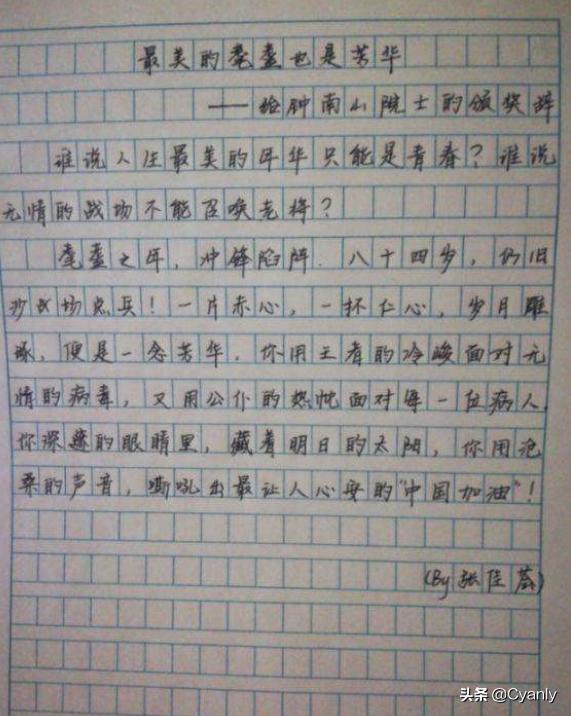 最美的耄耋也是芳华
——给钟南山院士的颁奖辞
谁说人生最美的年华只能是青春？谁说
无情的战场不能召唤老将？
耄耋之年，冲锋陷阵.八十四岁，仍旧
沙战场点兵！一片赤心，一抔仁心，岁月雕
琢，便是一念芳华.你用王者的冷峻面对无
情的病毒，又用公仆的热忱面对每一位病人.
你深邃的眼睛里，藏着明日的太阳，你用沧
桑的声音，嘶吼出最让人心安的“中国加油”！
(By 张佳蕊)
头条 @Cyanly